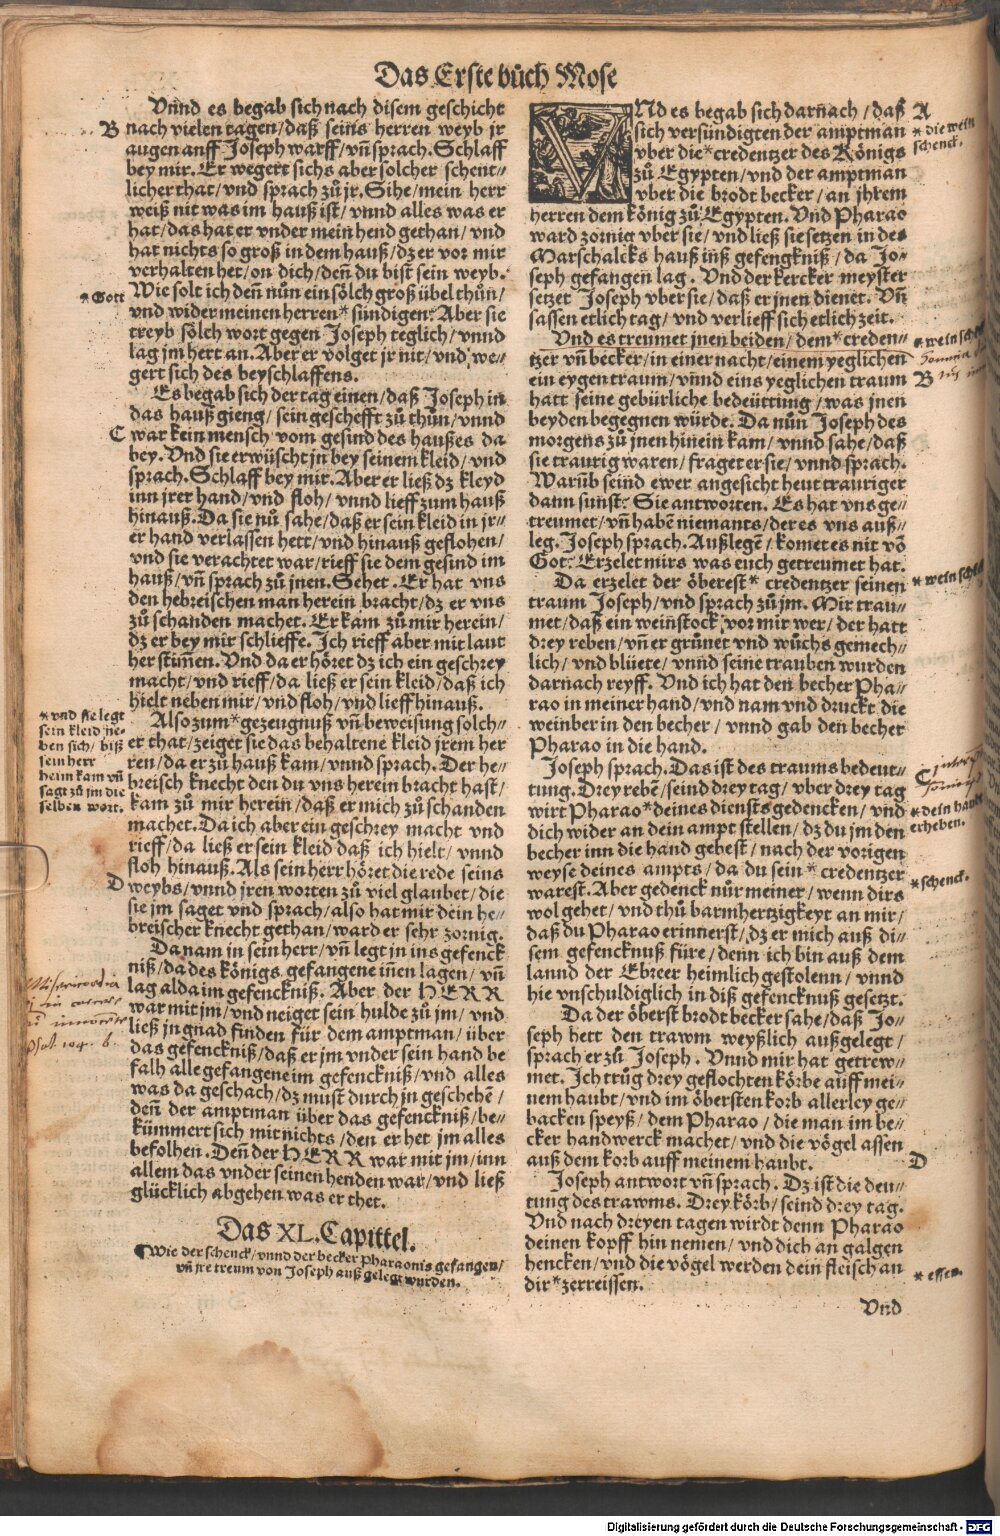 Das Erste bůch Mose
Vnnd es begab sich nach disem geschicht
B nach vielen tagen/daß seins herren weyb jr
augen auff Joseph warff/vñ sprach. Schlaff
bey mir. Er wegert sichs aber solcher schent⸗
licher that/vnd sprach zů jr. Sihe/mein herr
weiß nit was im hauß ist/vnnd alles was er
hat/das hat er vnder mein hend gethan/vnd
hat nichts so groß in dem hauß/dz er vor mir
verhalten het/on dich/deñ du bist sein weyb.
* Gott
Wie solt ich deñ nůn ein sölch groß übel thůn/
vnd wider meinen herren* sündigen? Aber sie
treyb sölch wort gegen Joseph teglich/vnnd
lag jm hert an. Aber er volget jr nit/vnd we⸗
gert sich des beyschlaffens.
Es begab sich der tag einen/daß Joseph in
das hauß gieng/sein geschefft zů thůn/vnnd
C war kein mensch vom gesind des haußes da
bey. Vnd sie erwüscht jn bey seinem kleid/vnd
sprach. Schlaff bey mir. Aber er ließ dz kleyd
inn jrer hand/vnd floh/vnnd lieff zum hauß
hinauß. Da sie nů sahe/daß er sein kleid in jr⸗
er hand verlassen hett/vnd hinauß geflohen/
vnd sie verachtet war/rieff sie dem gesind im
hauß/vñ sprach zů jnen. Sehet. Er hat vns
den hebreischen man herein bracht/dz er vns
zů schanden machet. Er kam zů mir herein/
dz er bey mir schlieffe. Ich rieff aber mit laut
her stim̃en. Vnd da er höret dz ich ein geschrey
macht/vnd rieff/da ließ er sein kleid/daß ich
hielt neben mir/vnd floh/vnd lieff hinauß.
* vnd sie legt
sein kleid ne⸗
ben sich/biß
sein herr
heim kam vñ
sagt zů jm die
selben wort.
Also zum* gezeugnuß vñ beweisung solch⸗
er that/zeiget sie das behaltene kleid jrem her
ren/da er zů hauß kam/vnnd sprach. Der he⸗
breisch knecht den du vns herein bracht hast/
kam zů mir herein/daß er mich zů schanden
machet. Da ich aber ein geschrey macht vnd
rieff/da ließ er sein kleid daß ich hielt/vnnd
floh hinauß. Als sein herr höret die rede seins
D weybs/vnnd jren worten zů viel glaubet/die
sie jm saget vnd sprach/also hat mir dein he⸗
breischer knecht gethan/ward er sehr zornig.
Da nam in sein herr/vñ legt in ins gefenck
niß/da des königs gefangene iñen lagen/vñ
lag alda im gefenckniß. Aber der HERR
war mit jm/vnd neiget sein hulde zů jm/vnd
ließ jn gnad finden für dem amptman/über
das gefenckniß/daß er jm vnder sein hand be
falh alle gefangene im gefenckniß/vnd alles
was da geschach/dz must durch jn geschehē/
deñ der amptman über das gefenckniß/be⸗
kümmert sich mit nichts/den er het jm alles
befolhen. Deñ der HERR war mit jm/inn
allem das vnder seinen henden war/vnd ließ
glücklich abgehen was er thet.
psal. 104. b.
Das XL. Capittel.
¶Wie der schenck/vnnd der becker Pharaonis gefangen/
vñ jre treum von Joseph auß gelegt wurden.
VNd es begab sich darnach/daß A
sich versündigten der amptman
* die wein
schenck.
vber die* credentzer des Königs
zů Egypten/vnd der amptman
vber die brodt becker/an jhrem
herren dem könig zů Egypten. Vnd Pharao
ward zornig vber sie/vnd ließ sie setzen in des
Marschalcks hauß inß gefengkniß/da Jo⸗
seph gefangen lag. Vnd der kercker meyster
setzet Joseph vber sie/daß er jnen dienet. Vñ
sassen etlich tag/vnd verlieff sich etlich zeit.
Vnd es treumet jnen beiden/dem* creden⸗
tzer vñ becker/in einer nacht/einem yeglichen
B
ein eygen traum/vnnd eins yeglichen traum
hatt seine gebürliche bedeüttung/was jnen
beyden begegnen würde. Da nůn Joseph des
morgens zů jnen hinein kam/vnnd sahe/daß
sie traurig waren/fraget er sie/vnnd sprach.
Warüb seind ewer angesicht heut trauriger
dann sunst? Sie antworten. Es hat vns ge⸗
treumet/vñ habē niemants/der es vns auß⸗
leg. Joseph sprach. Außlegē/komet es nit vō
Got? Erzelet mirs was euch getreumet hat.
Da erzelet der öberest* credentzer seinen
traum Joseph/vnd sprach zů jm. Mir trau⸗
met/daß ein weinstock vor mir wer/der hatt
drey reben/vñ er grünet vnd wůchs gemech⸗
lich/vnd blüete/vnnd seine trauben wurden
darnach reyff. Vnd ich hat den becher Pha⸗
rao in meiner hand/vnd nam vnd druckt die
weinber in den becher/vnnd gab den becher
Pharao in die hand.
Joseph sprach. Das ist des traums bedeut⸗
C
tung. Drey rebē/seind drey tag/vber drey tag
wirt Pharao* deines diensts gedencken/vnd
* dein haubt
erheben.
dich wider an dein ampt stellen/dz du jm den
becher inn die hand gebest/nach der vorigen
weyse deines ampts/da du sein* credentzer
* schenck.
warest. Aber gedenck nůr meiner/wenn dirs
wol gehet/vnd thů barmhertzigkeyt an mir/
daß du Pharao erinnerst/dz er mich auß di⸗
sem gefencknuß füre/denn ich bin auß dem
lannd der Ebreer heimlich gestolenn/vnnd
hie vnschuldiglich in diß gefencknuß gesetzt.
Da der öberst brodt becker sahe/daß Jo⸗
seph hett den trawm weyßlich außgelegt/
sprach er zů Joseph. Vnnd mir hat getrew⸗
met. Ich trůg drey geflochten körbe auff mei⸗
nem haubt/vnd im öbersten korb allerley ge⸗
backen speyß/dem Pharao/die man im be⸗
cker handwerck machet/vnd die vögel assen
auß dem korb auff meinem haubt. D
Joseph antwort vñ sprach. Dz ist die deu⸗
tung des trawms. Drey körb/seind drey tag.
Vnd nach dreyen tagen wirdt denn Pharao
deinen kopff hin nemen/vnd dich an galgen
hencken/vnd die vögel werden dein fleisch an
dir* zerreissen.
* essen.
Vnd
Digitalisierung gefördert durch die Deutsche Forschungsgemeinschaft - DFG